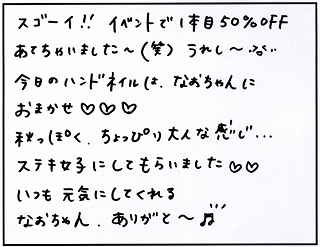 スゴーイ!! イベントで1本目50%OFF
あてちゃいました〜(笑) うれし〜
今日のハンドネイルは、なおちゃんに
おまかせ♡♡♡
秋っぽく、ちょっぴり大人な感じ...
ステキ女子にしてもらいました♡♡
いつも 元気にしてくれる
なおちゃん、ありがと〜♫